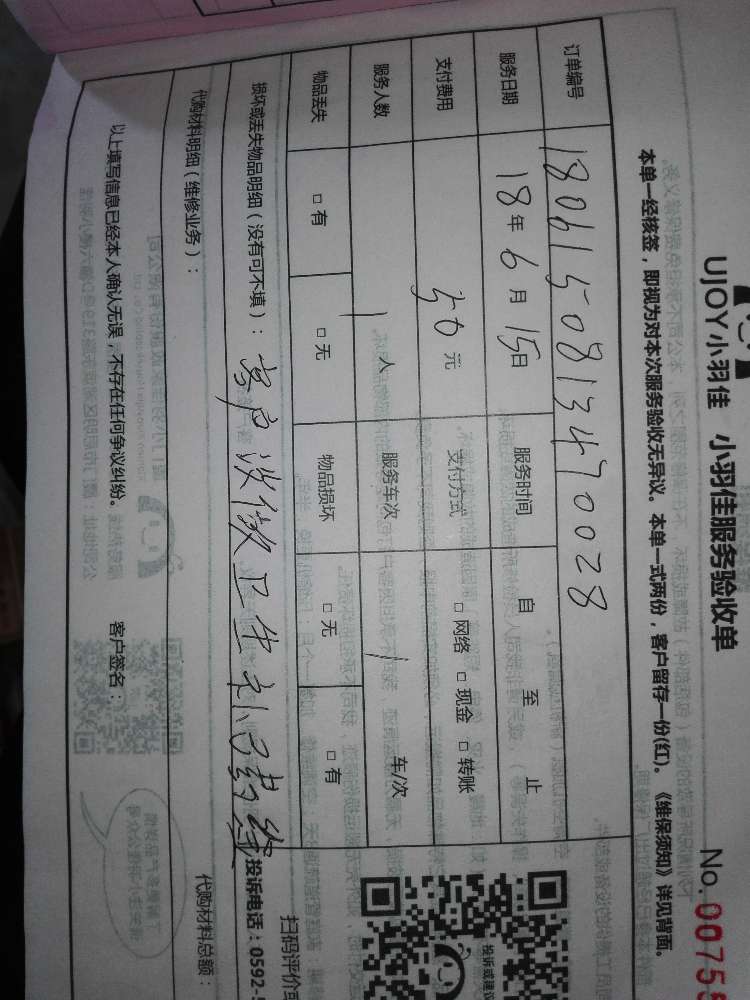 UJOY小羽佳 小羽佳服务验收单
No. 00755
本单一经核签，即视为对本次服务验收无异议。本单一式两份，客户留存一份(红)。《维保须知》详见背面。
订单编号 180615081347 0028
服务日期 18年6月15日 服务时间 自 至 止
支付费用 50元 支付方式 □ 网络 □ 现金 □ 转账
服务人数 1人 服务车次 1 车/次
物品丢失 □ 有 □ 无 物品损坏 □ 无 □ 有
损坏或丢失物品明细（没有可不填）： 客户没做卫生
代购材料明细（维修业务）： 代购材料总额：
以上填写信息已经本人确认无误，不存在任何争议纠纷。 客户签名：
投诉或建议
扫码评价或
投诉电话：0592-5